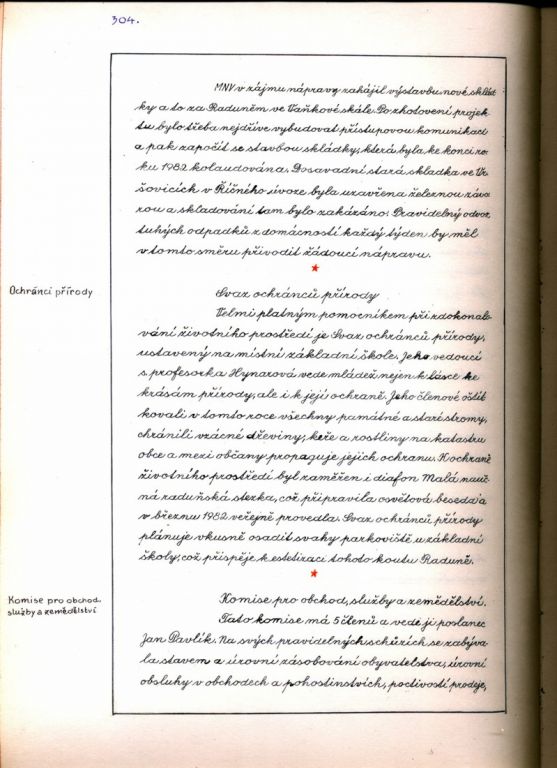 304.
MNV v zájmu nápravy zahájil výstavbu nové sklád-
ky a to za Raduněm ve Vaňkově skále. Po zhotovení projek-
tu bylo třeba nejdříve vybudovat přístupovou komunikaci
a pak započít se stavbou skládky, která byla ke konci ro-
ku 1982 kolaudována. Dosavadní stará skládka ve Vr-
šovicích v Říčného úvoze byla uzavřena železnou závo-
rou a skladování tam bylo zakázáno. Pravidelný odvoz
tuhých odpadků z domácností každý týden by měl
v tomto směru přivodit žádoucí nápravu.
Ochránci přírody
Svaz ochránců přírody
Velmi platným pomocníkem při zdokonalo-
vání životního prostředí je Svaz ochránců přírody,
ustavený na místní základní škole. Jeho vedoucí
s. profesorka Hynarová vede mládež nejen k lásce ke
krásám přírody, ale i k její ochraně. Jeho členové oštít-
kovali v tomto roce všechny památné a staré stromy,
chránili vzácné dřeviny, keře a rostliny na katastru
obce a mezi občany propaguje jejich ochranu. K ochraně
životního prostředí byl zaměřen i diafon Malá nauč-
ná raduňská stezka, což připravila osvětová beseda a
v březnu 1982 veřejně provedla. Svaz ochránců přírody
plánuje vkusně osadit svahy parkoviště u základní
školy, což přispěje k estetizaci tohoto koutu Raduně.
Komise pro obchod,
služby a zemědělství
Komise pro obchod, služby a zemědělství.
Tato komise má 5 členů a vede ji poslanec
Jan Pavlík. Na svých pravidelných schůzích se zabýva-
la stavem a úrovní zásobování obyvatelstva, úrovní
obsluhy v obchodech a pohostinstvích, poctivostí prodeje,